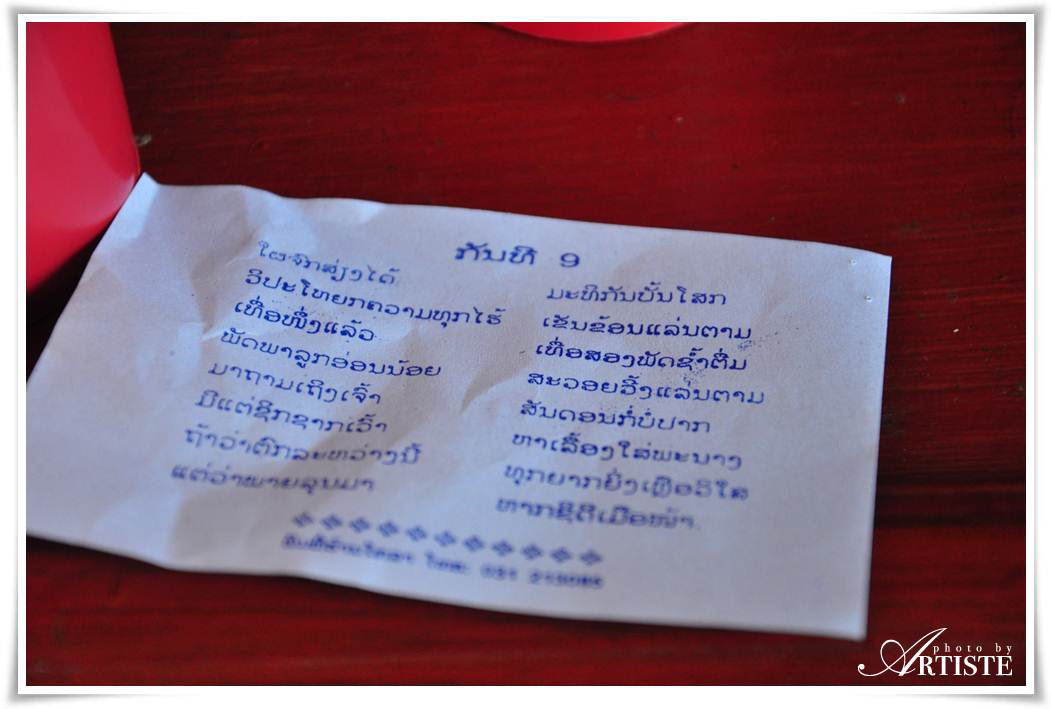 ກັນທີ 9
ໃຜຈົກສ່ຽງໄດ້ ມະທີກັນບັ້ນໂສກ
ວິປະໂຫຍກຄວາມທຸກໄຮ້ ເຂັນຂ້ອນແລ່ນຕາມ
ເທື່ອໜຶ່ງແລ້ວ ເທື່ອສອງພັດຊ້ຳຕື່ມ
ພັດພາລູກອ່ອນນ້ອຍ ສະວອຍວີ້ງແລ່ນຕາມ
ມາຖາມເຖິງເຈົ້າ ສັນດອນກໍ່ບໍ່ປາກ
ມີແຕ່ຊີກຊາກເວົ້າ ຫາເລື້ອງໃສ່ພະນາງ
ຖ້າວ່າຕົກລະຫວ່າງນີ້ ທຸກຍາກຍິ່ງເຫຼືອວິໄສ
ແຕ່ວ່າພາຍລຸນມາ ຫາກຊິດີເມືອໜ້າ
photo by
ARTISTE